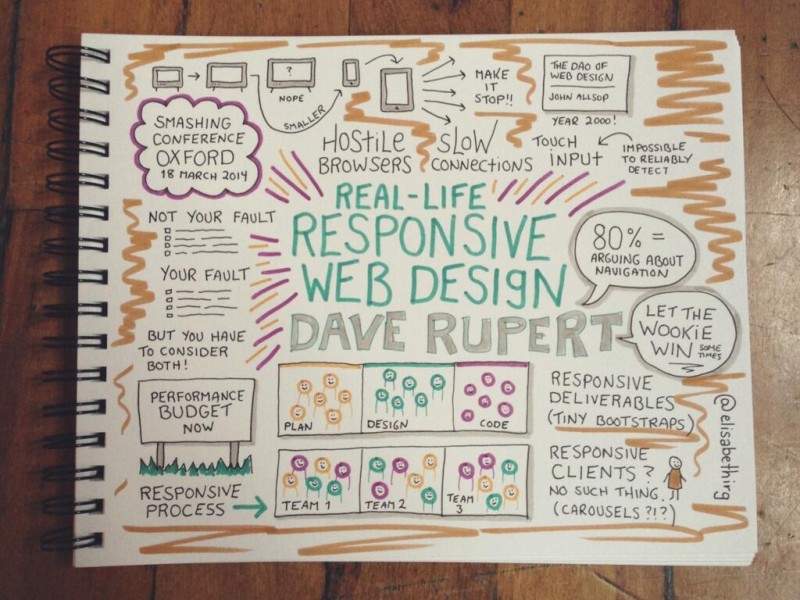 ?
NOPE
SMALLER
MAKE
IT
STOP!!
THE DAO OF
WEB DESIGN
JOHN ALLSOP
YEAR 2000!
SMASHING
CONFERENCE
OXFORD
18 MARCH 2014
HOSTILE
BROWSERS
SLOW
CONNECTIONS
TOUCH
INPUT
IMPOSSIBLE
TO RELIABLY
DETECT
REAL-LIFE
RESPONSIVE
WEB DESIGN
DAVE RUPERT
NOT YOUR FAULT
YOUR FAULT
BUT YOU HAVE
TO CONSIDER
BOTH!
80% =
ARGUING ABOUT
NAVIGATION
LET THE
WOOKIE
WIN SOME
TIMES
PERFORMANCE
BUDGET
NOW
RESPONSIVE
PROCESS
PLAN
DESIGN
CODE
TEAM 1
TEAM 2
TEAM
3
RESPONSIVE
DELIVERABLES
(TINY BOOTSTRAPS)
RESPONSIVE
CLIENTS?
NO SUCH THING.
(CAROUSELS?!?)
@elisabethirg